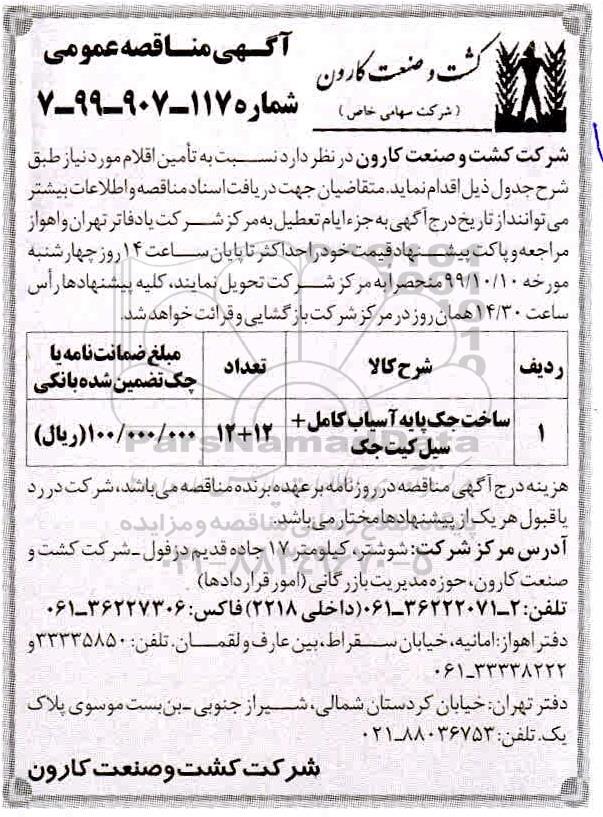 آگهی مناقصه عمومی
شماره ۱۱۷-۹۰۷-۹۹-۷
کشت و صنعت کارون
(شرکت سهامی خاص)
شرکت کشت و صنعت کارون در نظر دارد نسبت به تأمین اقلام مورد نیاز طبق
شرح جدول ذیل اقدام نماید. متقاضیان جهت دریافت اسناد مناقصه و اطلاعات بیشتر
می توانند از تاریخ درج آگهی به جزء ایام تعطیل به مرکز شرکت یا دفاتر تهران و اهواز
مراجعه و پاکت پیشنهاد قیمت خود را حداکثر تا پایان ساعت ۱۴ روز چهارشنبه
مورخه ۹۹/۱۰/۱۰ منحصرا به مرکز شرکت تحویل نمایند، کلیه پیشنهادها رأس
ساعت ۱۴/۳۰ همان روز در مرکز شرکت بازگشایی و قرائت خواهد شد.
ردیف شرح کالا تعداد مبلغ ضمانت نامه یا
چک تضمین شده بانکی
۱ ساخت جک پایه آسیاب کامل + ۱۲+۱۲ ۱۰۰/۰۰۰/۰۰۰(ریال)
سیل کیت جک
ParsNamadData
هزینه درج آگهی مناقصه در روزنامه بر عهده برنده مناقصه می باشد، شرکت در رد
یا قبول هر یک از پیشنهادها مختار می باشد.
آدرس مرکز شرکت: شوشتر، کیلومتر ۱۷ جاده قدیم دزفول - شرکت کشت و
صنعت کارون، حوزه مدیریت بازرگانی (امور قراردادها)
تلفن: ۲-۳۶۲۲۲۰۷۱-۰۶۱ (داخلی ۲۲۱۸) فاکس: ۳۶۲۲۷۳۰۶-۰۶۱
دفتر اهواز: امانیه، خیابان سقراط، بین عارف و لقمان. تلفن: ۳۳۳۳۵۸۵۰ و
۳۳۳۳۸۲۲۲-۰۶۱
دفتر تهران: خیابان کردستان شمالی، شیراز جنوبی - بن بست موسوی پلاک
یک. تلفن: ۸۸۰۳۶۷۵۳-۰۲۱
شرکت کشت و صنعت کارون